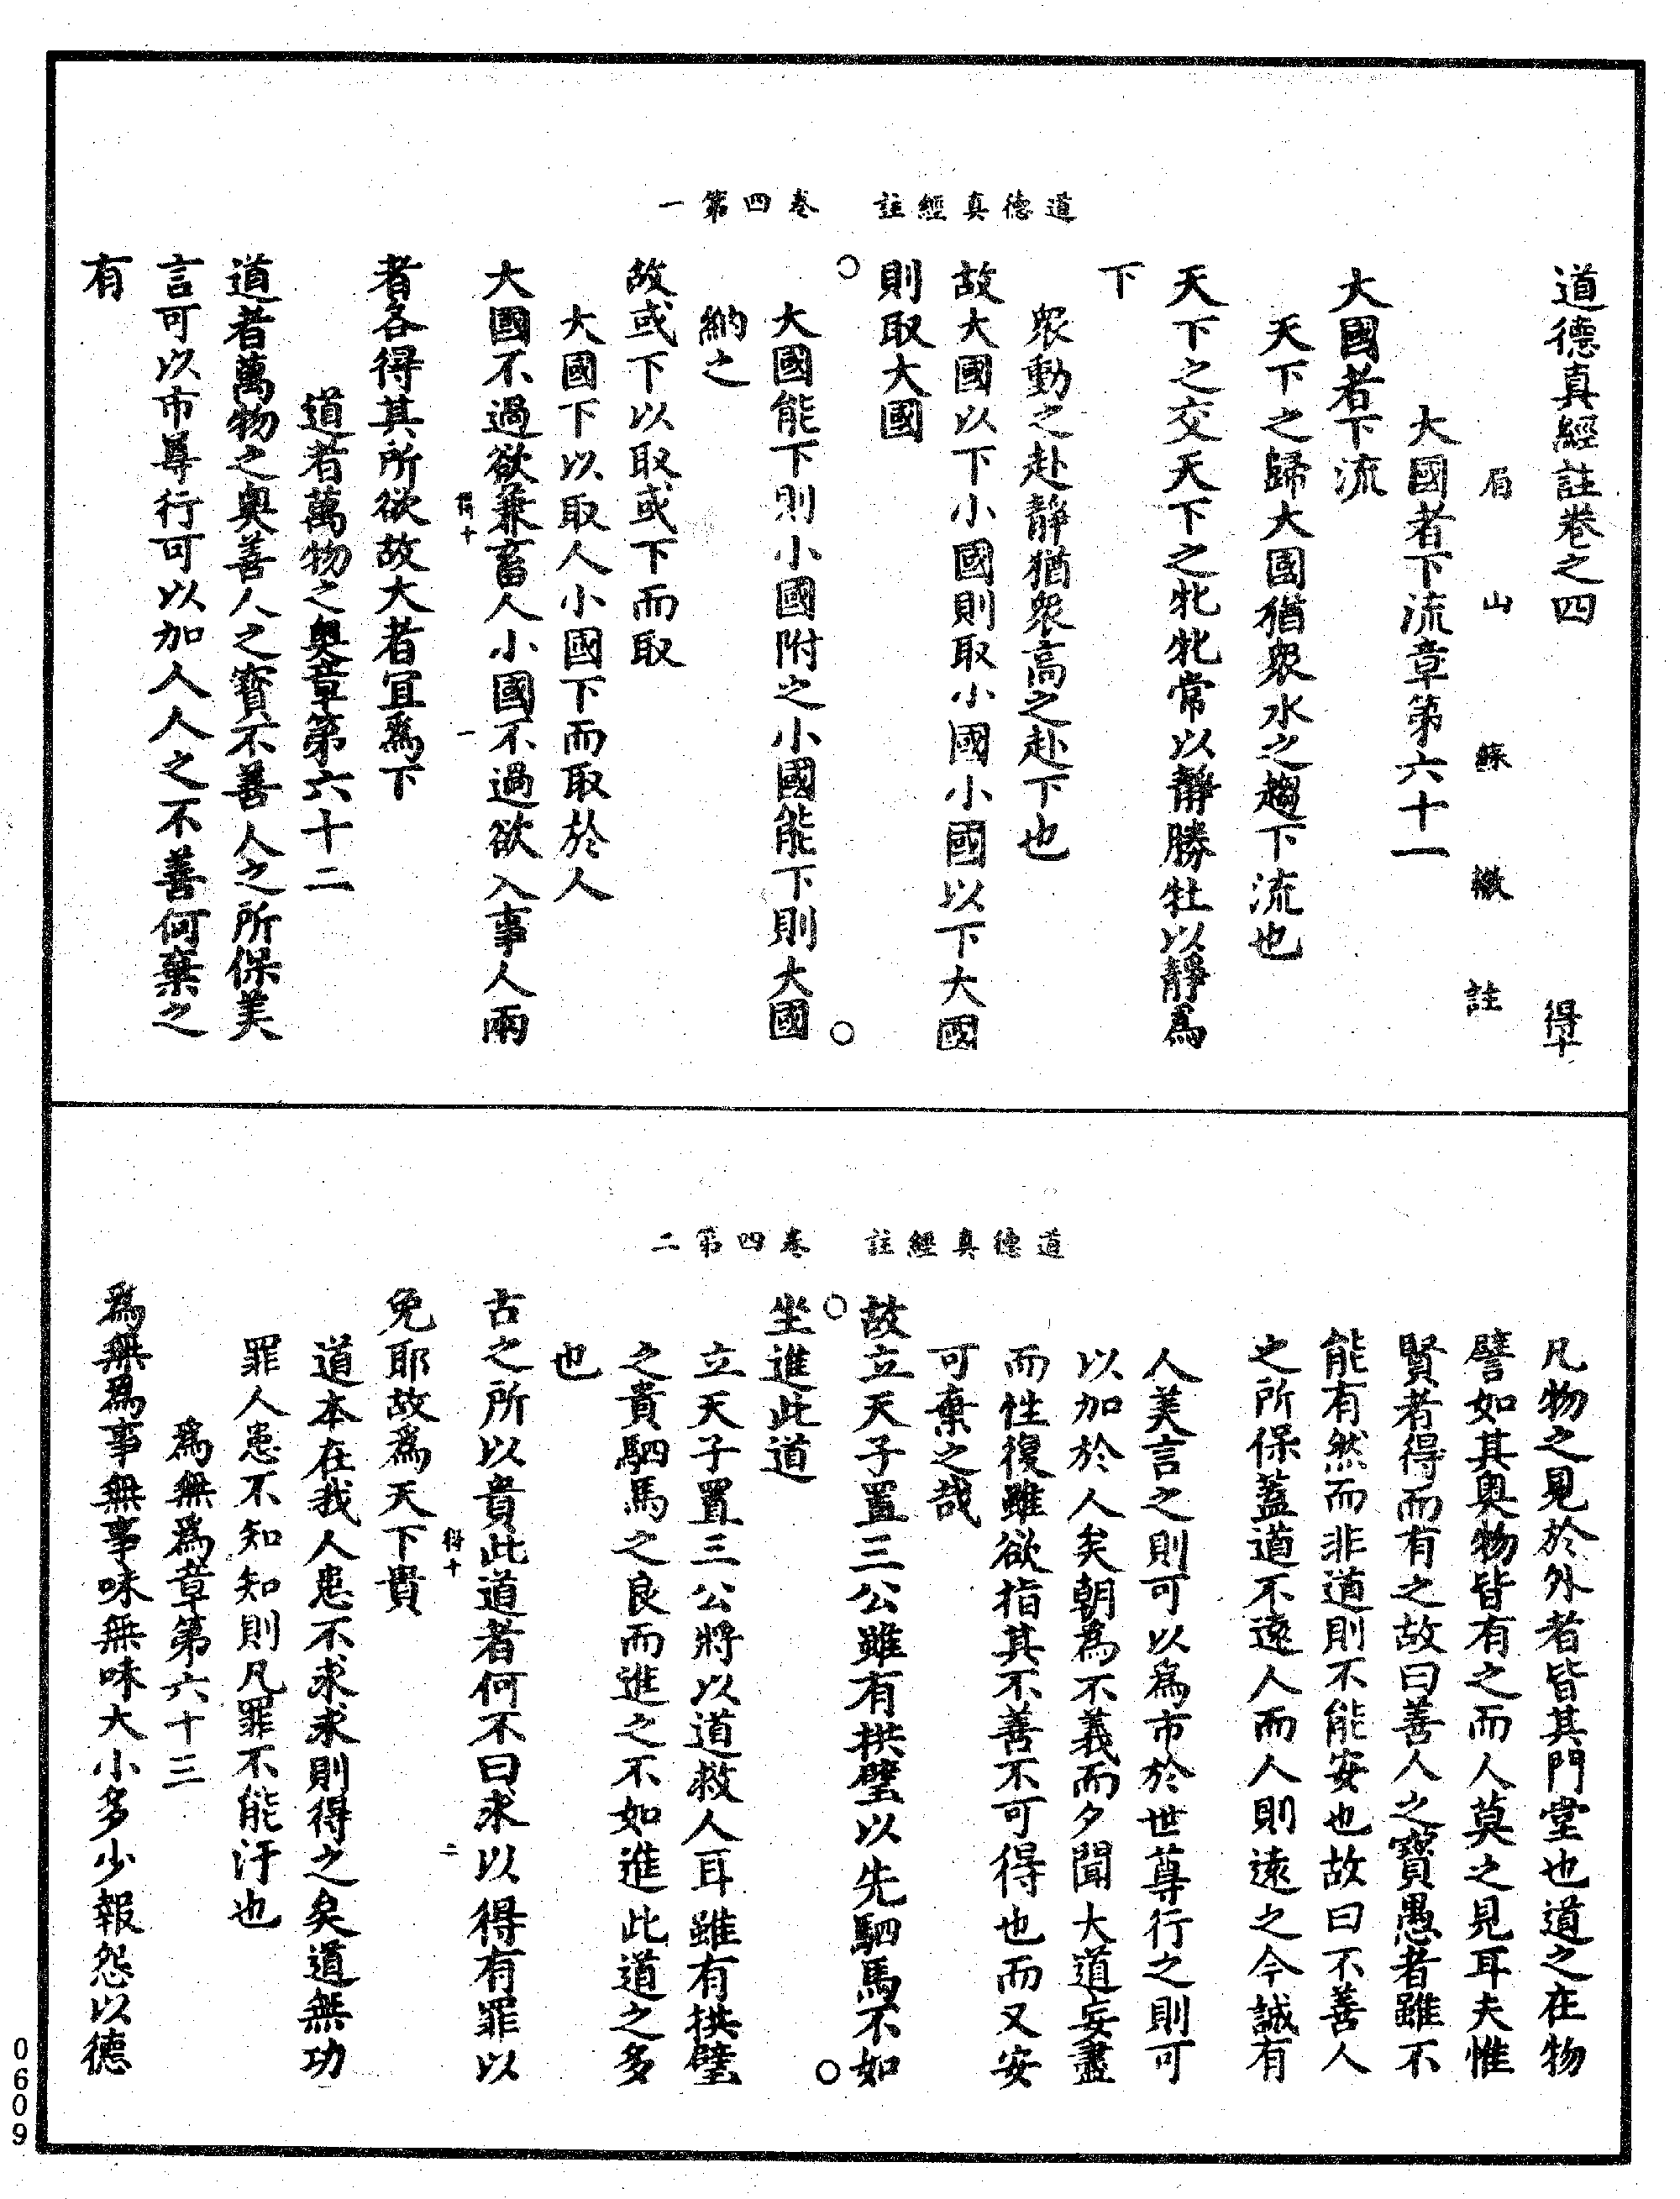 道德真經註　卷四第一
道德真經註卷之四　得十
眉山蘇轍註
大國者下流章第六十一
大國者下流
天下之歸大國猶衆水之趨下流也
天下之交天下之牝牝常以靜勝牡以靜爲
下
衆動之赴靜猶衆高之赴下也
故大國以下小國則取小國小國以下大國
則取大國
○　○
大國能下則小國附之小國能下則大國
納之
故或下以取或下而取
大國下以取人小國下而取於人
大國不過欲兼畜人小國不過欲入事人兩
得十　一
者各得其所欲故大者宜爲下
道者萬物之奧章第六十二
道者萬物之奧善人之寶不善人之所保美
言可以市尊行可以加人人之不善何棄之
有
道德真經註　卷四第二
凡物之見於外者皆其門堂也道之在物
譬如其奧物皆有之而人莫之見耳夫惟
賢者得而有之故曰善人之寶愚者雖不
能有然而非道則不能安也故曰不善人
之所保蓋道不遠人而人則遠之今誠有
人美言之則可以為市於世尊行之則可
以加於人矣朝為不義而夕聞大道妄盡
而性復雖欲指其不善不可得也而又安
可棄之哉
故立天子置三公雖有拱璧以先駟馬不如
○　○
坐進此道
立天子置三公將以道救人耳雖有拱璧
之貴駟馬之良而進之不如進此道之多
也
古之所以貴此道者何不曰求以得有罪以
得十　二
免耶故為天下貴
道本在我人患不求求則得之矣道無功
罪人患不知知則凡罪不能汙也
爲無爲章第六十三
爲無爲事無事味無味大小多少報怨以德
0609